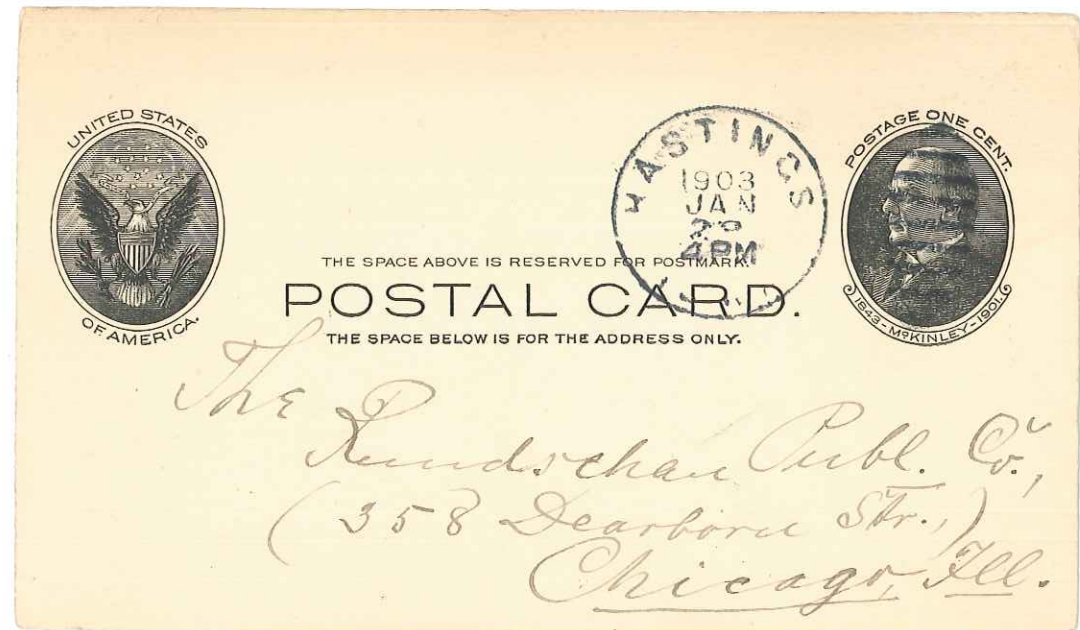 UNITED STATES
OF AMERICA.
HASTINGS
1903
JAN
4 PM
POSTAGE ONE CENT.
1843-McKINLEY-1901.
THE SPACE ABOVE IS RESERVED FOR POSTMARK.
POSTAL CARD.
THE SPACE BELOW IS FOR THE ADDRESS ONLY.
The
Rundschau Publ. Co.,
(358 Dearborn Str.,)
Chicago, Ill.